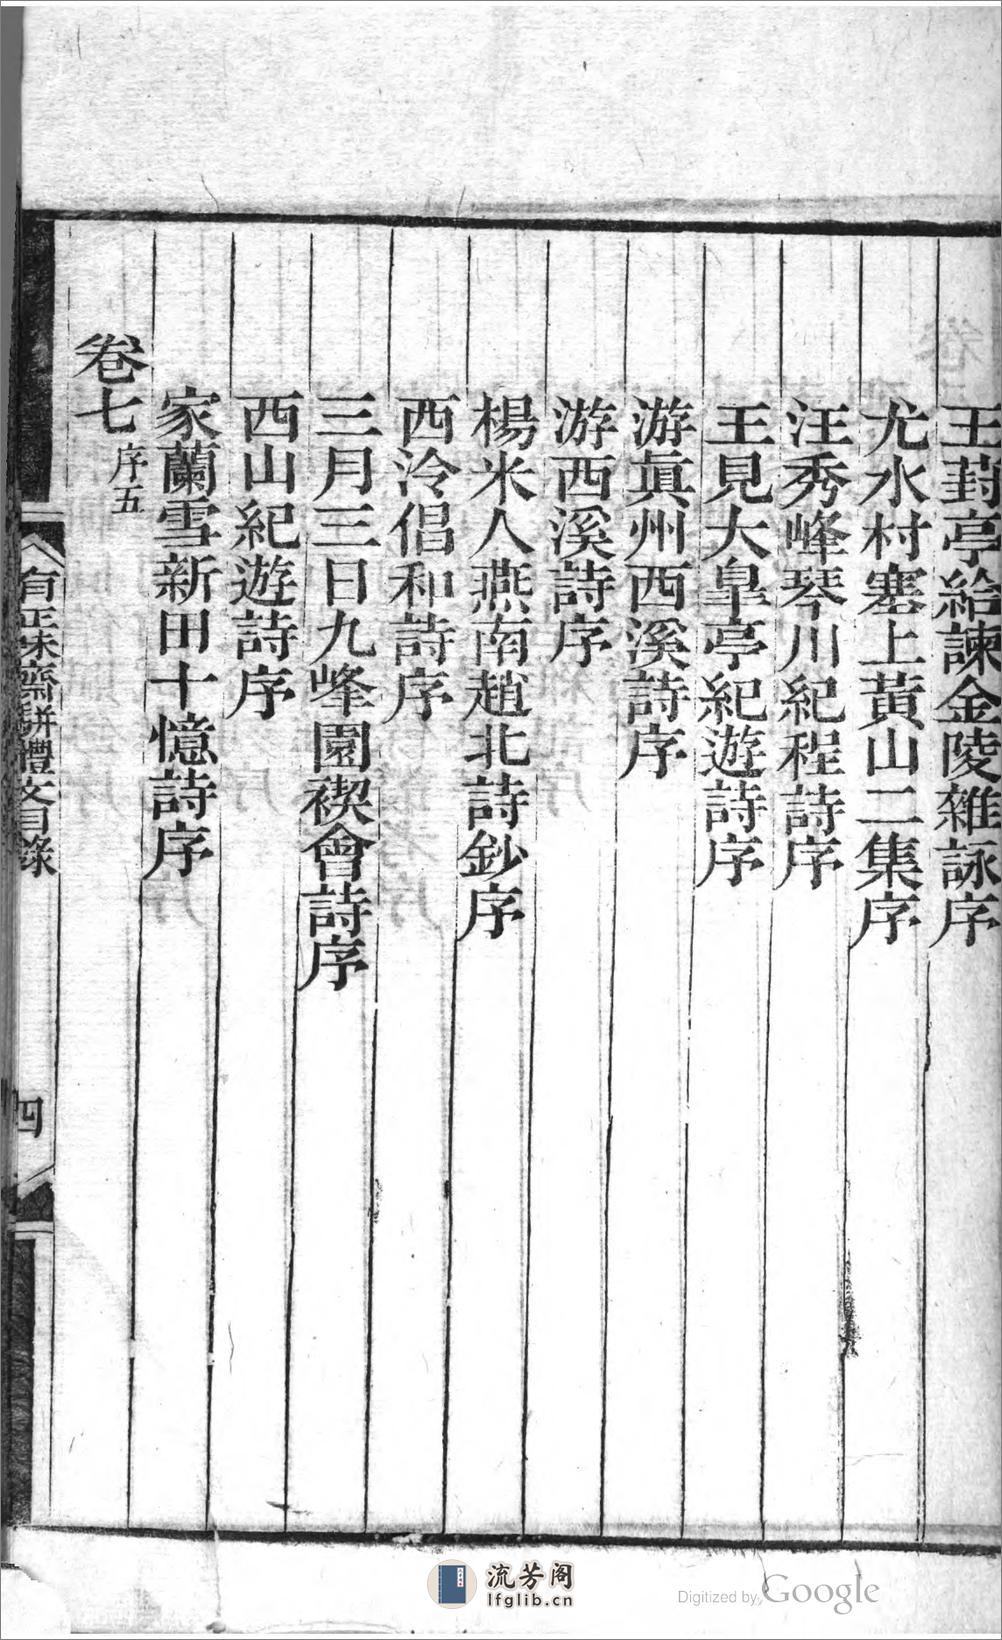 王葑亭給諫金陵雜詠序
尤水村塞上黃山二集序
汪秀峰琴川紀程詩序
王見大臯亭紀遊詩序
游眞州西溪詩序
游西溪詩序
楊米人燕南趙北詩鈔序
西泠倡和詩序
三月三日九峰園禊會詩序
西山紀遊詩序
家蘭雪新田十憶詩序
卷七 序五
有正味齋駢體文目錄
四
流芳阁
lfglib.cn
Digitized by Google